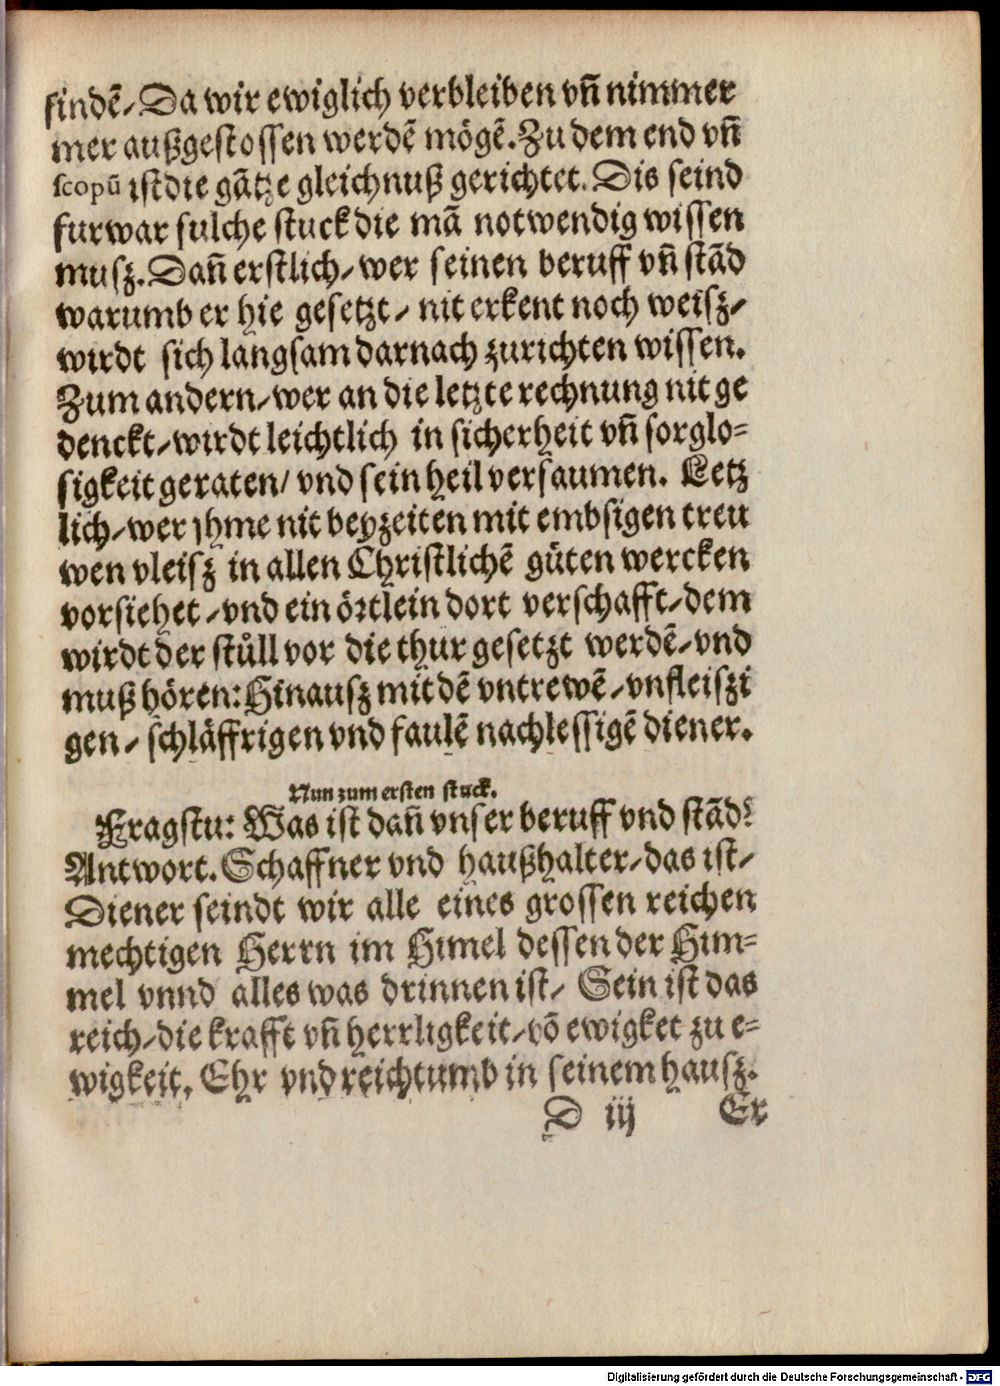 findē/ Da wir ewiglich verbleiben vn̄ nimmer
mer außgestossen werdē mögē. Zu dem end vn̄
scopū ist die gātze gleichnuß gerichtet. Dis seind
furwar sulche stuck die mā notwendig wissen
musz. Dan̄ erstlich/ wer seinen beruff vn̄ stād
warumb er hie gesetzt/ nit erkent noch weisz/
wirdt sich langsam darnach zurichten wissen.
Zum andern/ wer an die letzte rechnung nit ge
denckt/ wirdt leichtlich in sicherheit vn̄ sorglo-
sigkeit geraten/ vnd sein heil versaumen. Letz
lich/ wer jhme nit beyzeiten mit embsigen treu
wen vleisz in allen Christlichē güten wercken
vorsiehet/ vnd ein örtlein dort verschafft/ dem
wirdt der stůll vor die thur gesetzt werdē/ vnd
muß hören: Hinausz mit dē vntrewē/ vnfleiszi
gen/ schläffrigen vnd faulē nachlessigē diener.
Nun zum ersten stuck.
Fragstu: Was ist dan̄ vnser beruff vnd stād?
Antwort. Schaffner vnd haußhalter/ das ist/
Diener seindt wir alle eines grossen reichen
mechtigen Herrn im Himel dessen der Him-
mel vnnd alles was drinnen ist/ Sein ist das
reich/ die krafft vn̄ herrligkeit/ vō ewigket zu e-
wigkeit. Ehr vnd reichtumb in seinem hausz.
D iij Er
Digitalisierung gefördert durch die Deutsche Forschungsgemeinschaft - DFG